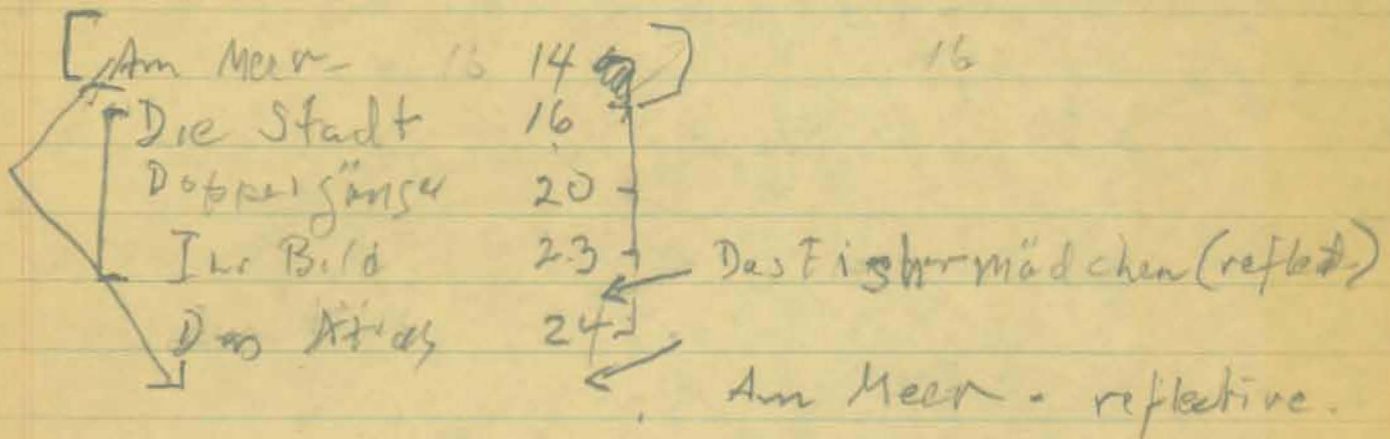 [Am Meer- 16 14] 16
Die Stadt 16
Doppelgänger 20
Ihr Bild 23
Das Fishermädchen (reflect.)
Das Atlas 24
Am Meer - reflective.